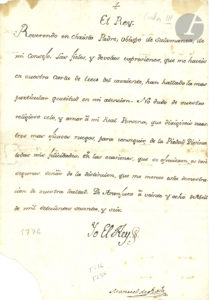 El Rey.
Reverendo en Christo Padre, Obispo de Salamanca, de
mi Consejo. Las fieles, y devotas expresiones, que me haceis
en vuestra Carta de trece del corriente, han hallado la mas
particular gratitud en mi atencion. No dudo de vuestro
religioso celo, y amor à mi Real Persona, que dirigireis vues-
tros mas ruegos, para conseguir de la Piedad Divina
todas mis felicidades. En las ocasiones, que se ofrezcan, os
de la que me merece esta demostracion
de vuestra lealtad. De Aranjuez à veinte y ocho de Abril
de mil setecientos y seis.
Yo El Rey
1776